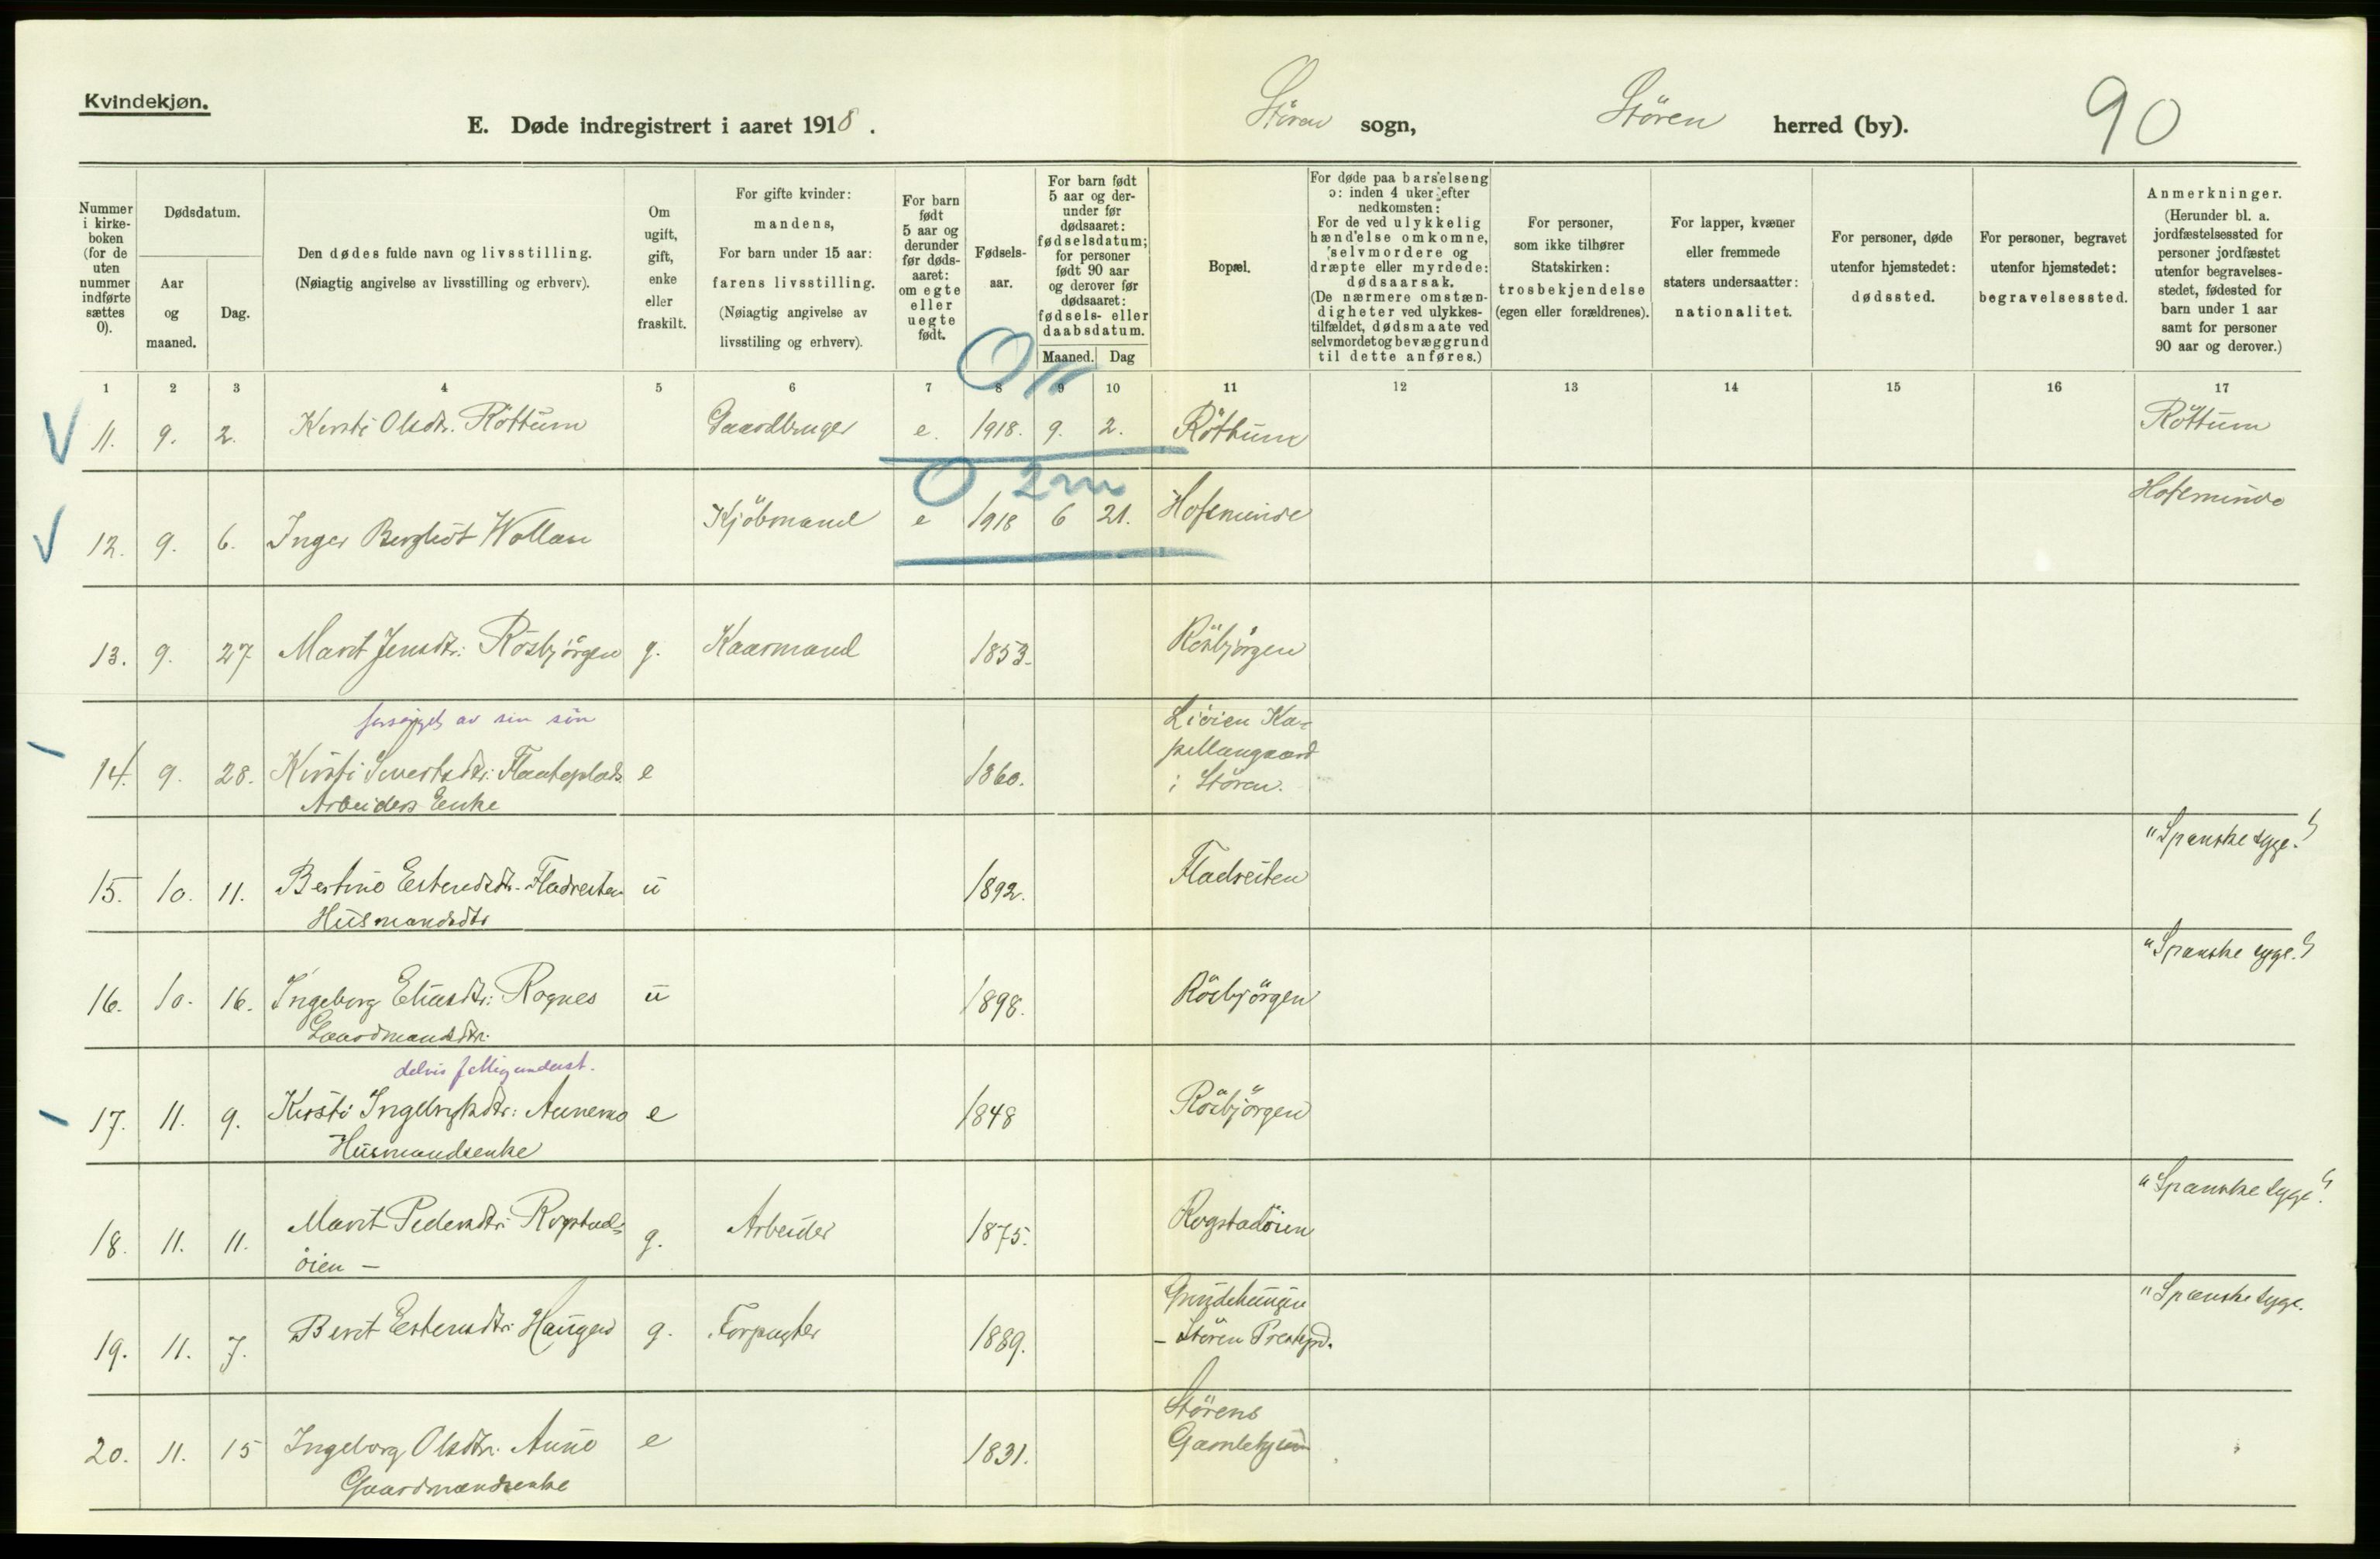 Kvindekjøn.
E. Døde indregistrert i aaret 1918.
Støren sogn, Støren herred (by).
90
Nummer i kirke-boken (for de uten nummer indførte sættes 0).
Dødsdatum.
Aar og maaned.
Dag.
Den dødes fulde navn og livsstilling.
(Nøiagtig angivelse av livsstilling og erhverv).
Om ugift, gift, enke eller fraskilt.
For gifte kvinder: mandens,
For barn under 15 aar: farens livsstilling.
(Nøiagtig angivelse av livsstiling og erhverv).
For barn født 5 aar og derunder før døds-aaret: om egte eller uegte født.
Fødsels-aar.
For barn født 5 aar og der-under før dødsaaret: fødselsdatum; for personer født 90 aar og derover før dødsaaret: fødsels- eller daabsdatum.
Maaned. Dag
Bopæl.
For døde paa barselseng ɔ: inden 4 uker efter nedkomsten:
For de ved ulykkelig hændelse omkomne, selvmordere og dræpte eller myrdede: dødsaarsak.
(De nærmere omstæn-digheter ved ulykkes-tilfældet, dødsmaate ved selvmordet og bevæggrund til dette anføres.)
For personer, som ikke tilhører Statskirken: trosbekjendelse (egen eller forældrenes).
For lapper, kvæner eller fremmede staters undersaatter: nationalitet.
For personer, døde utenfor hjemstedet: dødssted.
For personer, begravet utenfor hjemstedet: begravelsessted.
Anmerkninger.
(Herunder bl. a. jordfæstelsessted for personer jordfæstet utenfor begravelses-stedet, fødested for barn under 1 aar samt for personer 90 aar og derover.)
1 2 3 4 5 6 7 8 9 10 11 12 13 14 15 16 17
11. 9. 2. Kirsti Olsdtr. Röttum Gaardbruger e. 1918. 9. 2. Röttum Röttum
0 2m
12. 9. 6. Inger Bergliot Wollan Kjöbmand e 1918 6 21. Hofsminde Hofsminde
13. 9. 27 Marit Jensdtr: Rösbjörgen g. Kaarmand 1853. Rösbjörgen
forsörget av sin sön
14. 9. 28. Kirsti Sivertsdtr: Flaateplads e 1860. Liöien Ka-
pellangaard
i Stören.
Arbeiders Enke
15. 10. 11. Bertine Estensdtr. Fladreiten u 1892. Fladreiten "Spanske syge."
Husmandsdtr
16. 10. 16. Ingeborg Eliasdtr: Rognes u 1898. Rösbjörgen "Spanske syge."
Gaardmandsdtr.
delvis fattigunderst.
17. 11. 9. Kirsti Ingebrigtsdtr: Aunemo e 1848 Rösbjörgen
Husmandsenke
18. 11. 11. Marit Pedersdtr: Rogstad- g. Arbeider 1875. Rogstadöien "Spanske syge".
öien —
19. 11. 7. Berit Estensdtr: Haugen g. Forpagter 1889. "Spanske syge.
– Stören Prestegd.
20. 11. 15 Ingeborg Olsdtr. Aune e 1831. Störens
Gaardmandsenke